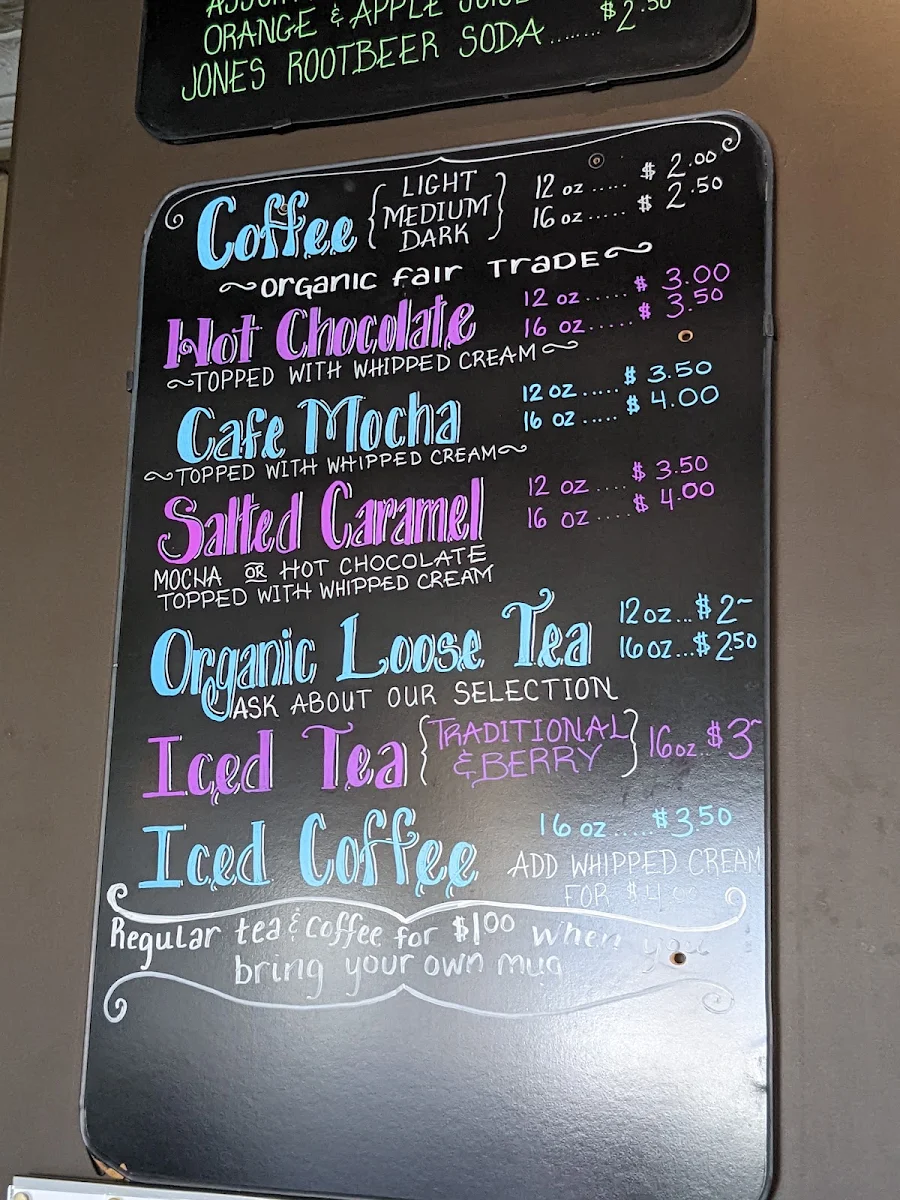 ORANGE & APPLE JUICE
$2.50
JONES ROOTBEER SODA........
Coffee { LIGHT MEDIUM DARK } 12 oz..... $ 2.00
16 oz..... $ 2.50
~ORGANIC FAIR TRADE~
Hot Chocolate 12 oz..... $ 3.00
16 oz..... $ 3.50
~TOPPED WITH WHIPPED CREAM~
Cafe Mocha 12 oz..... $ 3.50
16 oz..... $ 4.00
~TOPPED WITH WHIPPED CREAM~
Salted Caramel 12 oz.... $ 3.50
16 oz.... $ 4.00
MOCHA OR HOT CHOCOLATE
TOPPED WITH WHIPPED CREAM
Organic Loose Tea 12oz...$2~
16oz...$2.50
ASK ABOUT OUR SELECTION
Iced Tea { TRADITIONAL & BERRY } 16oz..$3~
Iced Coffee 16 oz.....$3.50
ADD WHIPPED CREAM
FOR $4
Regular tea & coffee for $1.00 when you
bring your own mug